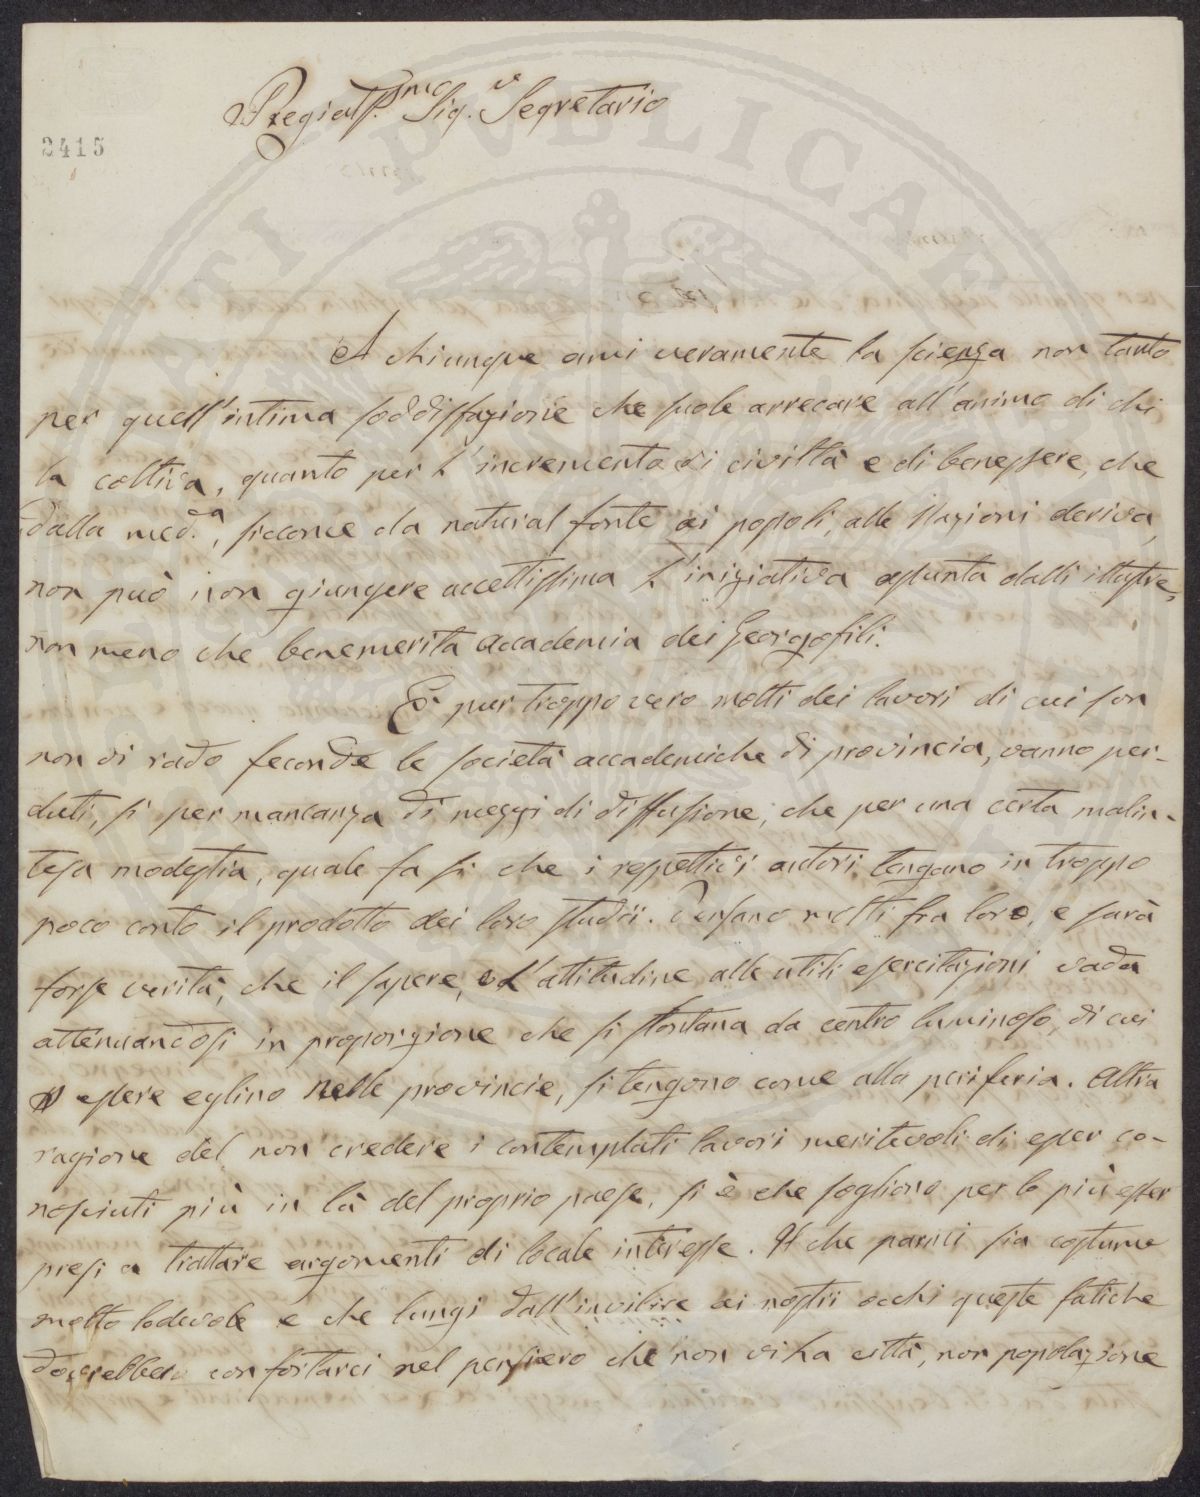 Pregiat.mo Sig.r Segretario
2415
A chiunque ami veramente la scienza non tanto
per quell'intima soddisfazione che suole arrecare all'animo di chi
la coltiva, quanto per l'incremento di civiltà e di benessere, che
dalla med.a, siccome da natural fonte ai popoli, alle Nazioni deriva,
non può non giungere accettissima l'iniziativa assunta dalli illustre,
non meno che benemerita accademia dei Georgofili.
È pur troppo vero molti dei lavori di cui son
non di rado feconde le società accademiche di provincia, vanno per-
duti, sì per mancanza di mezzi di diffusione, che per una certa malin-
tesa modestia, quale fa sì che i respettivi autori tengano in troppo
poco conto il prodotto dei loro studii. Pensano molti fra loro, e sarà
forse verità, che il sapere, e l'attitudine alle utili esercitazioni vada
attenuandosi in proporzione che si slontana da centro luminoso, di cui
essere eglino nelle provincie, si tengono come alla periferia. Altra
ragione del non credere i contemplati lavori meritevoli di esser co-
nosciuti più in là del proprio paese, si è che sogliono per lo più esser
presi a trattare argomenti di locale interesse. Il che parmi sia costume
molto lodevole e che lungi dall'invilire ai nostri occhi queste fatiche
dovrebbero confortarci nel pensiero che non vi ha città, non popolazione